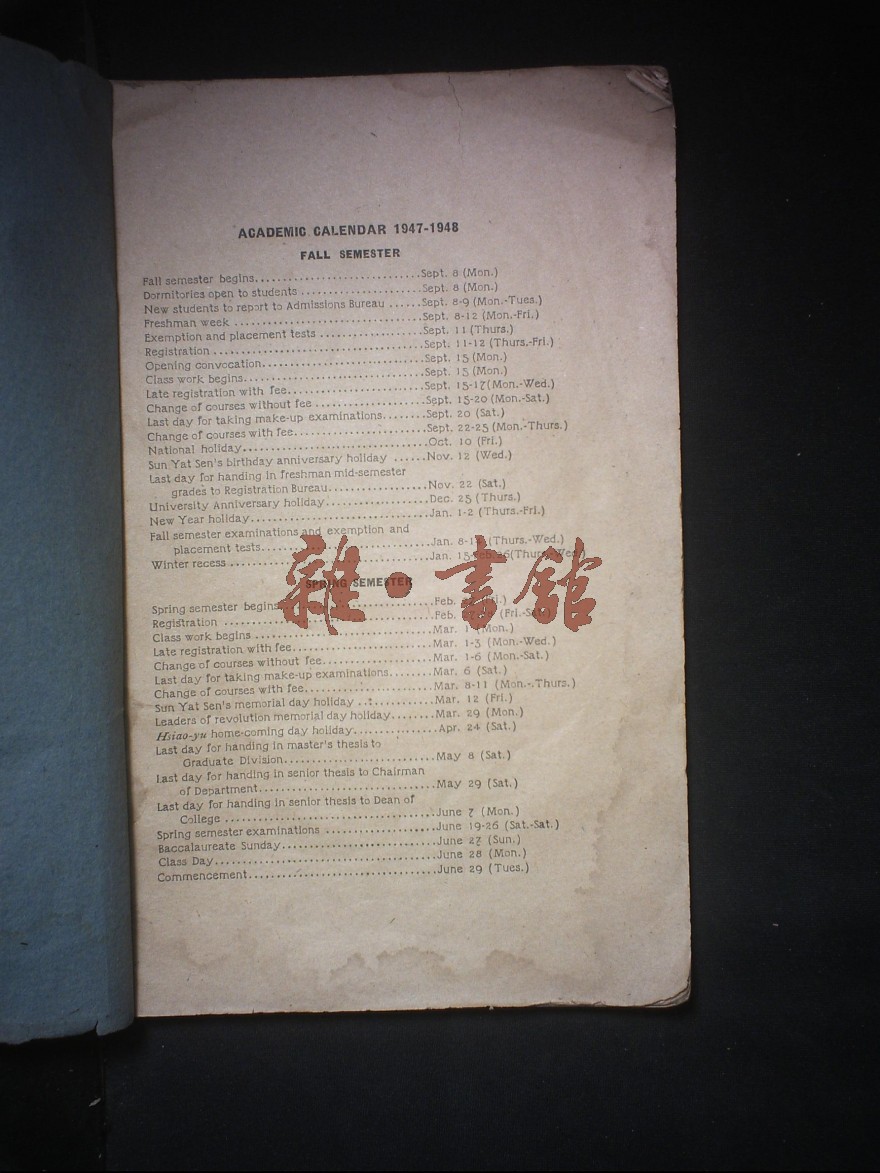 ACADEMIC CALENDAR 1947-1948
FALL SEMESTER
Fall semester begins..............................Sept. 8 (Mon.)
Dormitories open to students ....................Sept. 8 (Mon.)
New students to report to Admissions Bureau ......Sept. 8-9 (Mon.-Tues.)
Freshman week ..................................Sept. 8-12 (Mon.-Fri.)
Exemption and placement tests ..................Sept. 11 (Thurs.)
Registration ......................................Sept. 11-12 (Thurs.-Fri.)
Opening convocation.............................Sept. 15 (Mon.)
Class work begins................................Sept. 15 (Mon.)
Late registration with fee........................Sept. 15-17 (Mon.-Wed.)
Change of courses without fee ...................Sept. 15-20 (Mon.-Sat.)
Last day for taking make-up examinations........Sept. 20 (Sat.)
Change of courses with fee.......................Sept. 22-25 (Mon.-Thurs.)
National holiday.................................Oct. 10 (Fri.)
Sun Yat Sen's birthday anniversary holiday ......Nov. 12 (Wed.)
Last day for handing in freshman mid-semester
grades to Registration Bureau..................Nov. 22 (Sat.)
University Anniversary holiday...................Dec. 25 (Thurs.)
New Year holiday................................Jan. 1-2 (Thurs.-Fri.)
Fall semester examinations and exemption and
placement tests..............................Jan. 8-1 (Thurs.-Wed.)
Winter recess ...................................Jan. 15-Feb. 26 (Thurs.-Wed.)
雜·書館
SPRING SEMESTER
Spring semester begins...........................Feb.
Registration .....................................Feb. (Fri.-Sat.)
Class work begins ................................Mar. 1 (Mon.)
Late registration with fee.........................Mar. 1-3 (Mon.-Wed.)
Change of courses without fee....................Mar. 1-6 (Mon.-Sat.)
Last day for taking make-up examinations........Mar. 6 (Sat.)
Change of courses with fee.......................Mar. 8-11 (Mon.-Thurs.)
Sun Yat Sen's memorial day holiday ..............Mar. 12 (Fri.)
Leaders of revolution memorial day holiday........Mar. 29 (Mon.)
Hsiao-yu home-coming day holiday...............Apr. 24 (Sat.)
Last day for handing in master's thesis to
Graduate Division...........................May 8 (Sat.)
Last day for handing in senior thesis to Chairman
of Department................................May 29 (Sat.)
Last day for handing in senior thesis to Dean of
College ......................................June 7 (Mon.)
Spring semester examinations ....................June 19-26 (Sat.-Sat.)
Baccalaureate Sunday............................June 27 (Sun.)
Class Day........................................June 28 (Mon.)
Commencement..................................June 29 (Tues.)